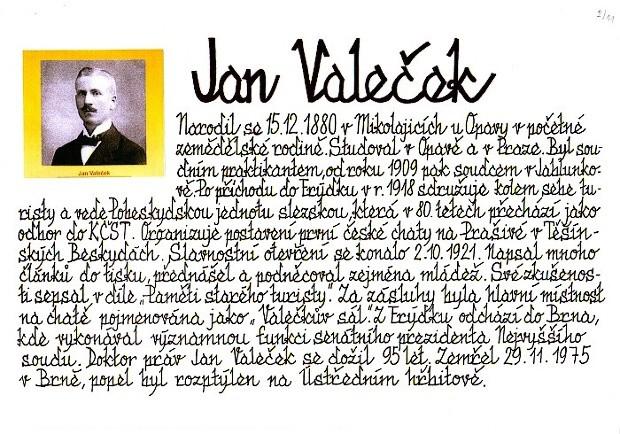 2/11
Jan Valeček
Jan Valeček
Narodil se 15.12.1880 v Mikolajicích u Opavy v početné
zemědělské rodině. Studoval v Opavě a v Praze. Byl sou-
dním praktikantem, od roku 1909 pak soudcem v Jablunko-
vě. Po příchodu do Frýdku v r. 1918 sdružuje kolem sebe tu-
risty a vede Pobeskydskou jednotu slezskou, která v 80. letech přechází jako
odbor do KČST. Organizuje postavení první české chaty na Prašivé v Těšín-
ských Beskydách. Slavnostní otevření se konalo 2.10.1921. Napsal mnoho
článků do tisku, přednášel a podněcoval zejména mládež. Své zkušenos-
ti sepsal v díle „Paměti starého turisty". Za zásluhy byla hlavní místnost
na chatě pojmenována jako „Valečkův sál". Z Frýdku odchází do Brna,
kde vykonával významnou funkci senátního prezidenta Nejvyššího
soudu. Doktor práv Jan Valeček se dožil 95 let. Zemřel 29.11.1975
v Brně, popel byl rozptýlen na Ústředním hřbitově.